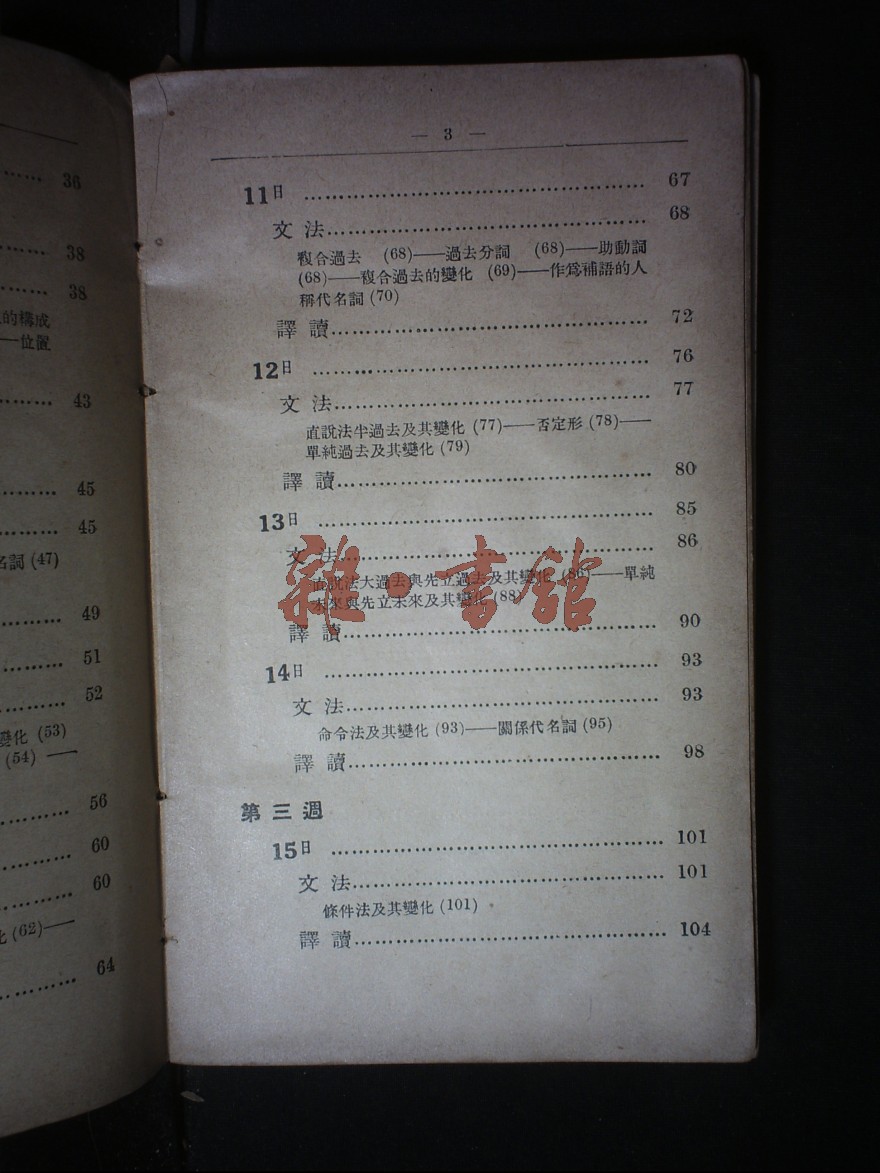 36
38
38
的構成
──位置
43
45
45
名詞 (47)
49
51
52
變化 (53)
(54) ──
56
60
60
化 (62)──
64
— 3 —
11日 …………………………………… 67
文 法…………………………………… 68
複合過去 (68)——過去分詞 (68)——助動詞
(68)——複合過去的變化 (69)——作爲補語的人
稱代名詞 (70)
譯 讀…………………………………… 72
12日 …………………………………… 76
文 法…………………………………… 77
直說法半過去及其變化 (77)——否定形 (78)——
單純過去及其變化 (79)
譯 讀…………………………………… 80
13日 …………………………………… 85
文 法…………………………………… 86
直說法大過去與先立過去及其變化 (86)——單純
未來與先立未來及其變化 (88)
雜·書館
譯 讀…………………………………… 90
14日 …………………………………… 93
文 法…………………………………… 93
命令法及其變化 (93)——關係代名詞 (95)
譯 讀…………………………………… 98
第 三 週
15日 …………………………………… 101
文 法…………………………………… 101
條件法及其變化 (101)
譯 讀…………………………………… 104